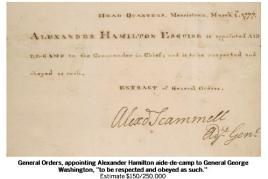 HEAD QUARTERS, Morristown, March 1, 1777.
ALEXANDER HAMILTON ESQUIRE is appointed AID
DE-CAMP to the Commander in Chief; and is to be respected and
obeyed as such.
EXTRACT of General Orders.
Alexd Scammell
Adjt Genl
General Orders, appointing Alexander Hamilton aide-de-camp to General George
Washington, "to be respected and obeyed as such."
Estimate $150/250,000